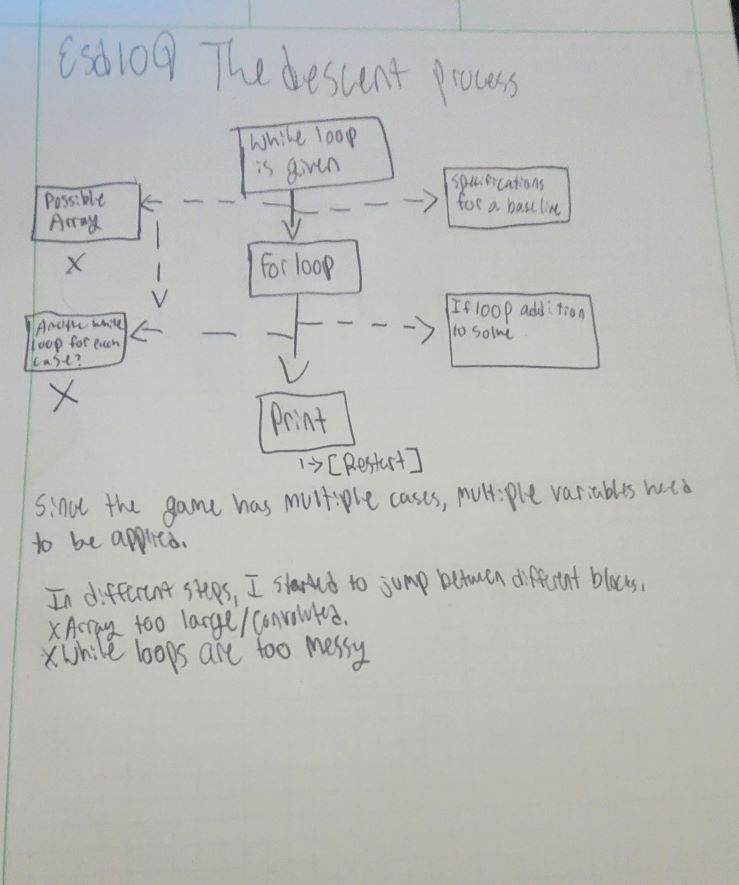 The descent process
While loop
is given
Possible
Array
X
Specifications
for a baseline
For loop
Another while
loop for each
case?
X
If loop addition
to solve
Print
↳ [Restart]
Since the game has multiple cases, multiple variables need
to be applied.
In different steps, I started to jump between different blocks.
X Array too large/convoluted.
X While loops are too messy